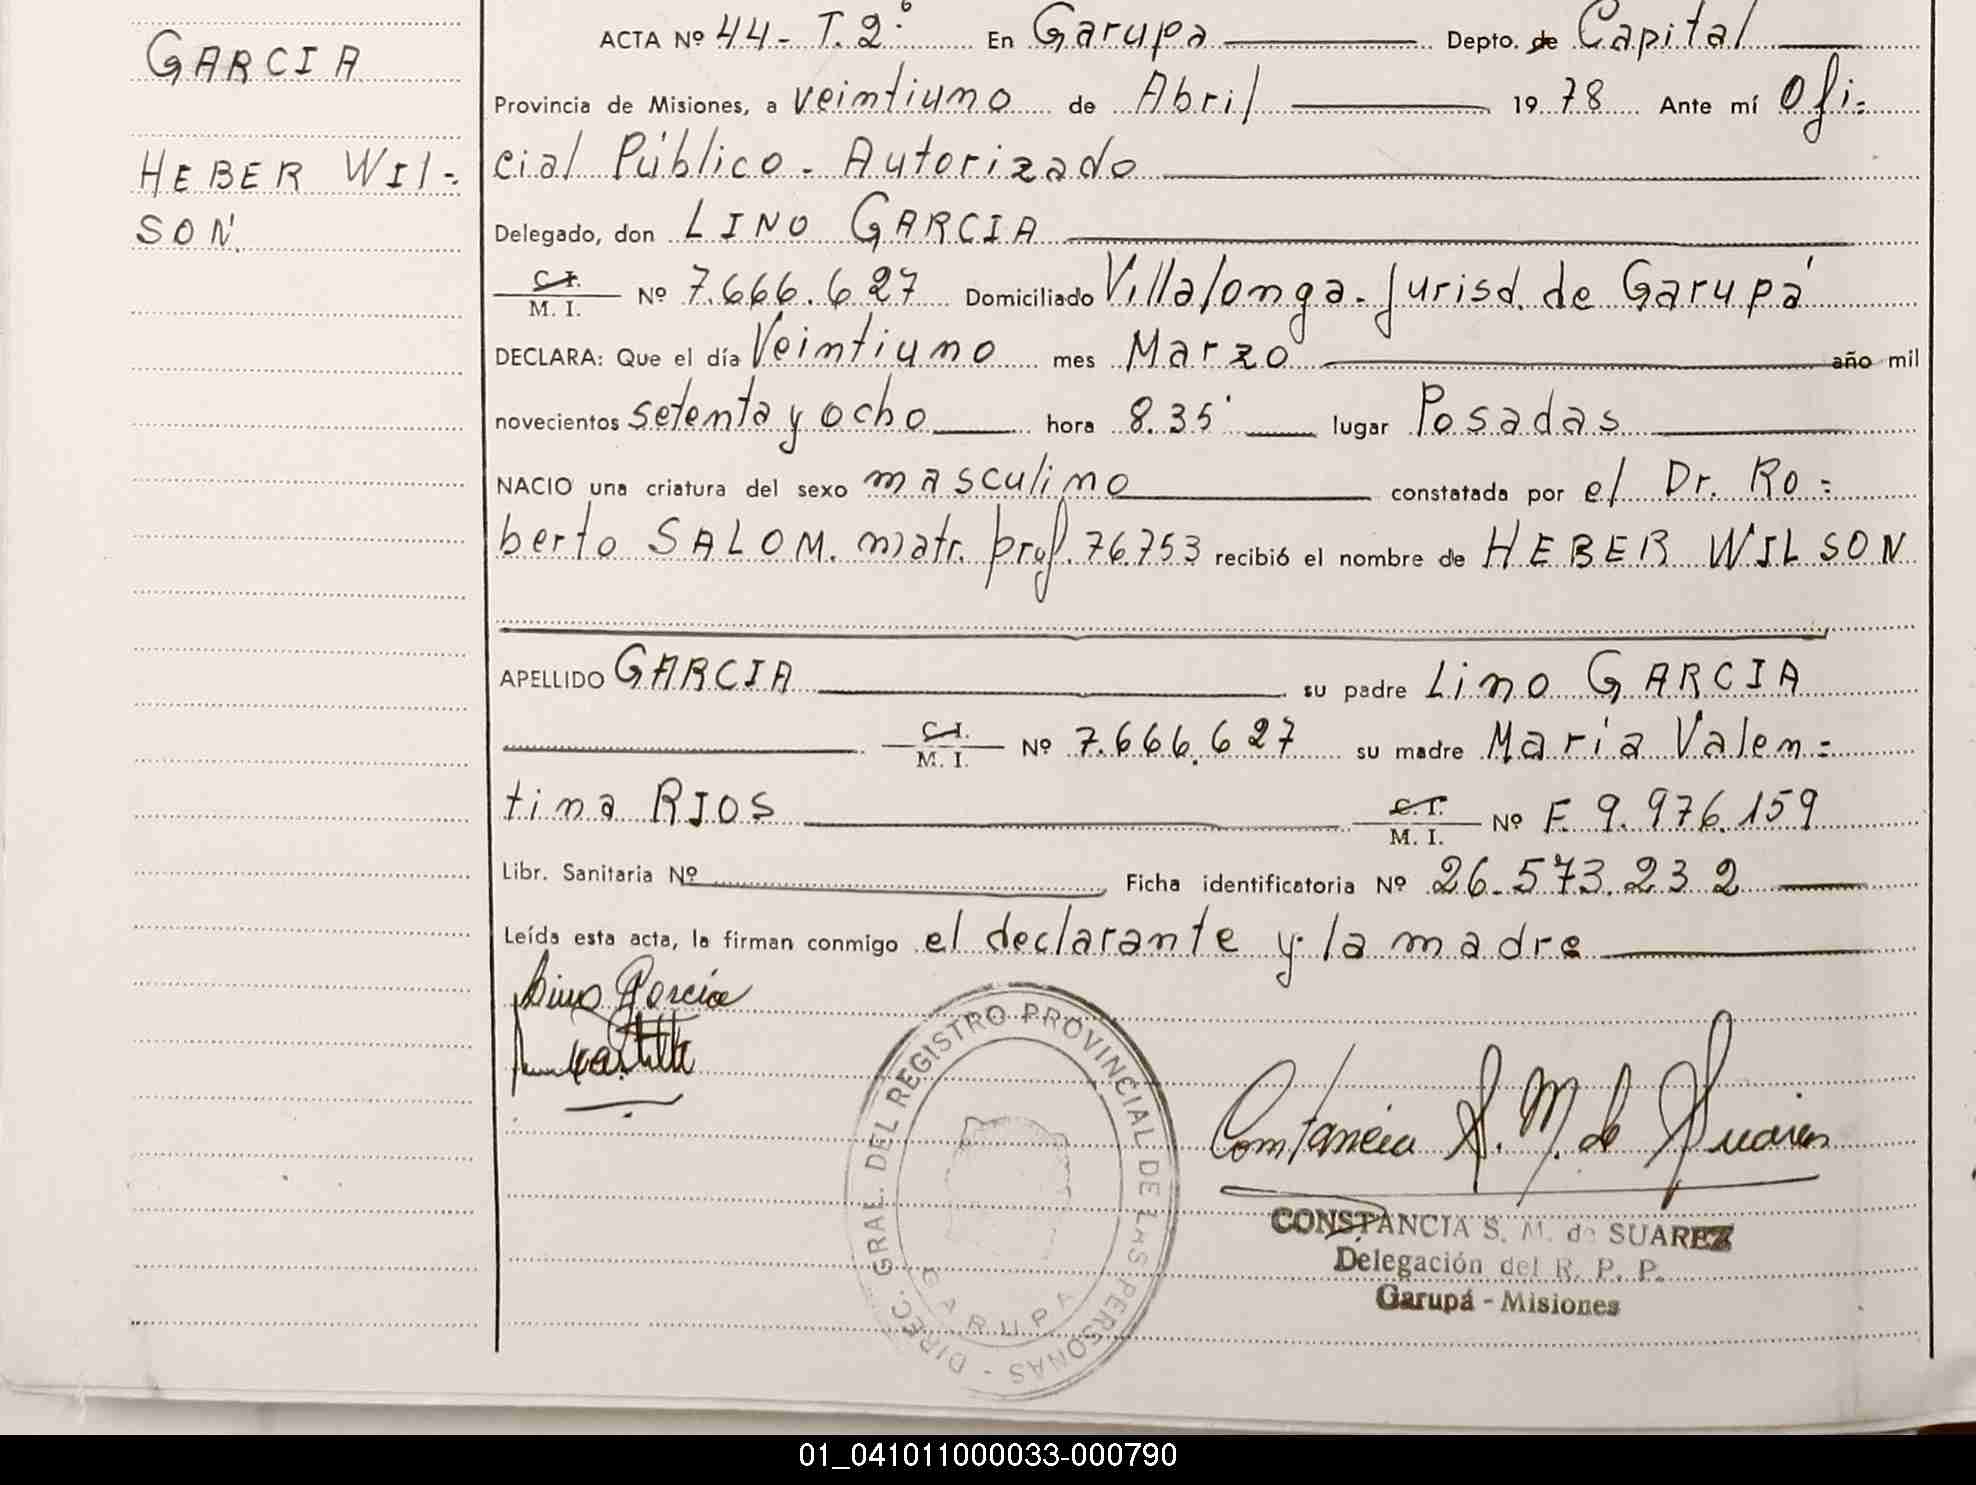 GARCIA
HEBER WIL-
SON.
ACTA Nº 44- T. 2º En Garupa Depto. de Capital
Provincia de Misiones, a veintiuno de Abril 19 78 Ante mí Ofi-
cial Público - Autorizado
Delegado, don LINO GARCIA
C. I.
M. I. Nº 7.666.627 Domiciliado Villalonga - Jurisd. de Garupá
DECLARA: Que el día Veintiuno mes Marzo año mil
novecientos setenta y ocho hora 8.35' lugar Posadas
NACIO una criatura del sexo masculino constatada por el Dr. Ro-
berto SALOM. matr. prof. 76.753 recibió el nombre de HEBER WILSON
APELLIDO GARCIA su padre Lino GARCIA
C. I.
M. I. Nº 7.666.627 su madre Maria Valen-
tina RIOS C. I.
M. I. Nº F. 9.976.159
Libr. Sanitaria Nº Ficha identificatoria Nº 26.573.232
Leída esta acta, la firman conmigo el declarante y la madre
Lino Garcia
Constancia S. M. de Suarez
DIREC. GRAL. DEL REGISTRO PROVINCIAL DE LAS PERSONAS -
GARUPA
CONSTANCIA S. M. de SUAREZ
Delegación del R. P. P.
Garupá - Misiones
01_041011000033-000790